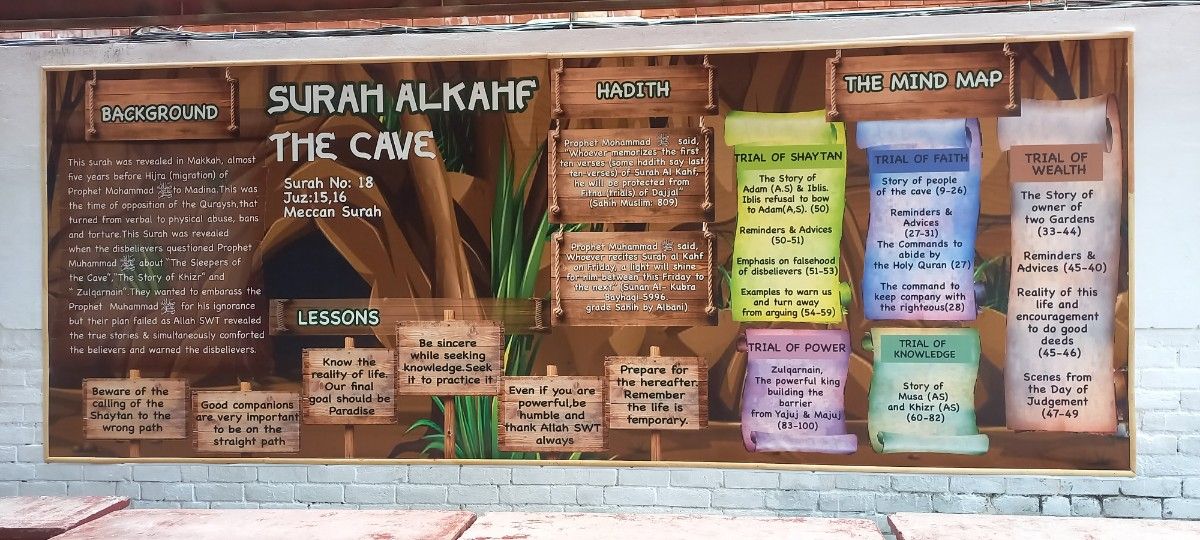 BACKGROUND
This surah was revealed in Makkah, almost
five years before Hijra (migration) of
Prophet Mohammad ﷺ to Madina.This was
the time of opposition of the Quraysh,that
turned from verbal to physical abuse, bans
and torture.This Surah was revealed
when the disbelievers questioned Prophet
Muhammad ﷺ about "The Sleepers of
the Cave","The Story of Khizr" and
" Zulqarnain".They wanted to embarass the
Prophet Muhammad ﷺ for his ignorance
but their plan failed as Allah SWT revealed
the true stories & simultaneously comforted
the believers and warned the disbelievers.
SURAH ALKAHF
THE CAVE
Surah No: 18
Juz:15,16
Meccan Surah
LESSONS
Beware of the
calling of the
Shaytan to the
wrong path
Good companions
are very important
to be on the
straight path
Know the
reality of life.
Our final
goal should be
Paradise
Be sincere
while seeking
knowledge.Seek
it to practice it
Even if you are
powerful,be
humble and
thank Allah SWT
always
Prepare for
the hereafter.
Remember
the life is
temporary.
HADITH
Prophet Mohammad ﷺ said,
"Whoever memorizes the first
ten verses (some hadith say last
ten verses) of Surah Al Kahf,
he will be protected from
Fitna (trials) of Dajjal"
(Sahih Muslim: 809)
Prophet Muhammad ﷺ said,
Whoever recites Surah al Kahf
on Friday, a light will shine
for him between this Friday to
the next" (Sunan Al- Kubra
Bayhaqi 5996.
grade Sahih by Albani)
THE MIND MAP
TRIAL OF SHAYTAN
The Story of
Adam (A.S) & Iblis.
Iblis refusal to bow
to Adam(A,S). (50)
Reminders & Advices
(50-51)
Emphasis on falsehood
of disbelievers (51-53)
Examples to warn us
and turn away
from arguing (54-59)
TRIAL OF FAITH
Story of people
of the cave (9-26)
Reminders &
Advices
(27-31)
The Commands to
abide by
the Holy Quran (27)
The command to
keep company with
the righteous(28)
TRIAL OF
WEALTH
The Story of
owner of
two Gardens
(33-44)
Reminders &
Advices (45-40)
Reality of this
life and
encouragement
to do good
deeds
(45-46)
Scenes from
the Day of
Judgement
(47-49
TRIAL OF POWER
Zulqarnain,
The powerful king
building the
barrier
from Yajuj & Majuj
(83-100)
TRIAL OF
KNOWLEDGE
Story of
Musa (AS)
and Khizr (AS)
(60-82)